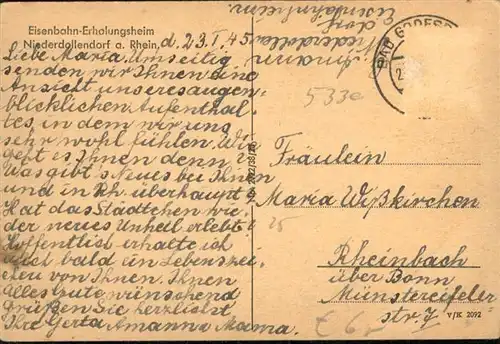 Eisenbahn-Erholungsheim
Niederdollendorf a. Rhein, d. 23. I. 45.
Liebe Maria, Umseitig
senden wir Ihnen eine
Ansicht unseres augen-
blicklichen Aufenthal-
tes, in dem wir uns
sehr wohl fühlen. Wie
geht es Ihnen denn?
Was gibt's Neues bei Ihnen
und in Rh. überhaupt?
Hat das Städtchen wie-
der neues Unheil erlebt?
Hoffentlich erhalte ich
bald ein Lebenszei-
chen von Ihnen. Ihnen
alles Gute wünschend
grüßen Sie herzlichst
Ihre Gerta Amann u. Mama.
Amann
Niederdollen-
dorf
Eisenbahnheim
BAD GODESB
533e
Fräulein
Maria Wißkirchen
25
Rheinbach
über Bonn
Münstereifeler
str. 7
V/K 2092